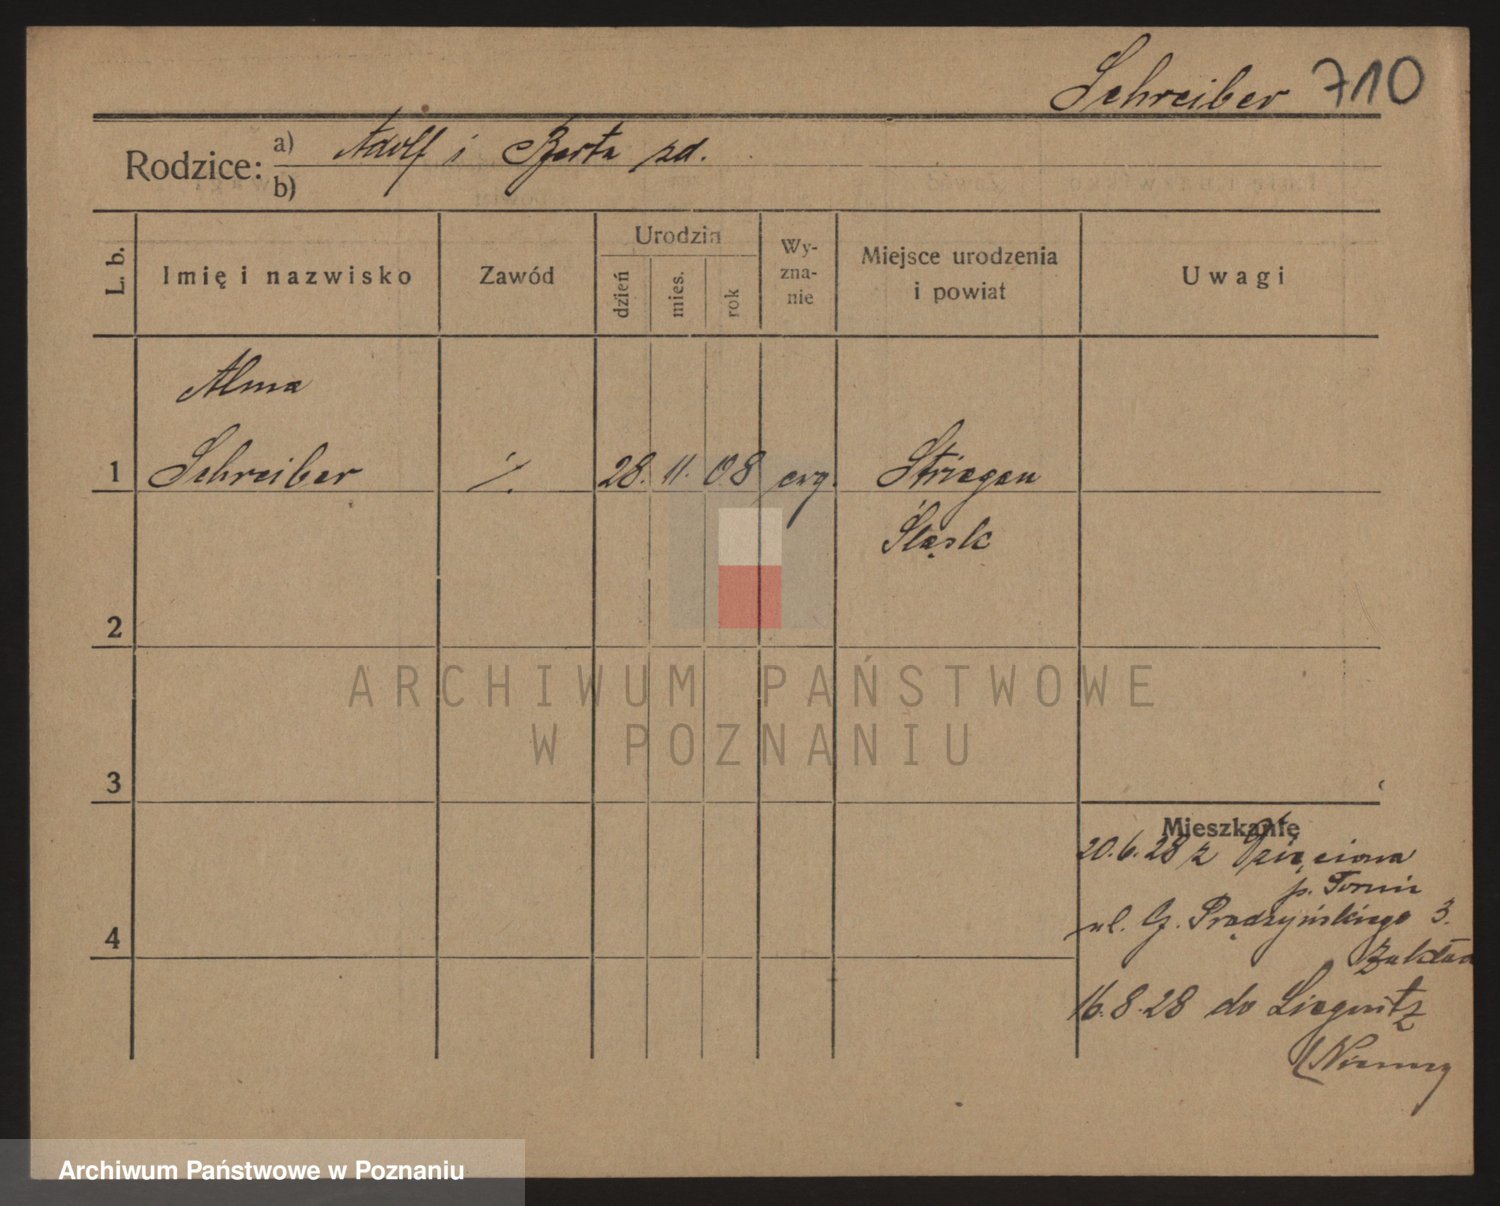 Schreiber 710
Rodzice:
a) Adolf i Berta zd.
b)
L. b.
Imię i nazwisko
Zawód
Urodzia
dzień
mies.
rok
Wy-
zna-
nie
Miejsce urodzenia
i powiat
Uwagi
Alma
1 Schreiber ./. 28. 11. 08 ewg. Striegau
Śląsk
2
3
4
Mieszkanie
20.6.28 z
p. Toruń
ul. G. Prądzyńskiego 3.
Zakład
16.8.28 do Liegnitz
(Niemcy
ARCHIWUM PAŃSTWOWE
W POZNANIU
Archiwum Państwowe w Poznaniu